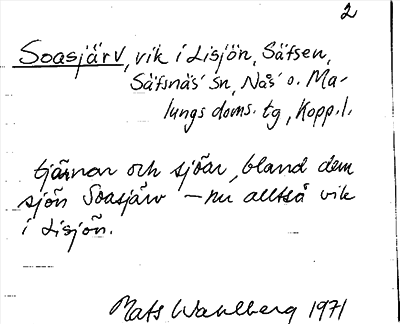 2
Soasjärv, vik i Lisjön, Säfsen,
Säfsnäs sn, Nås o. Ma-
lungs doms. tg, Kopp.l.
tjärnar och sjöar, bland dem
sjön Soasjärv – nu alltså vik
i Lisjön.
Mats Wahlberg 1971